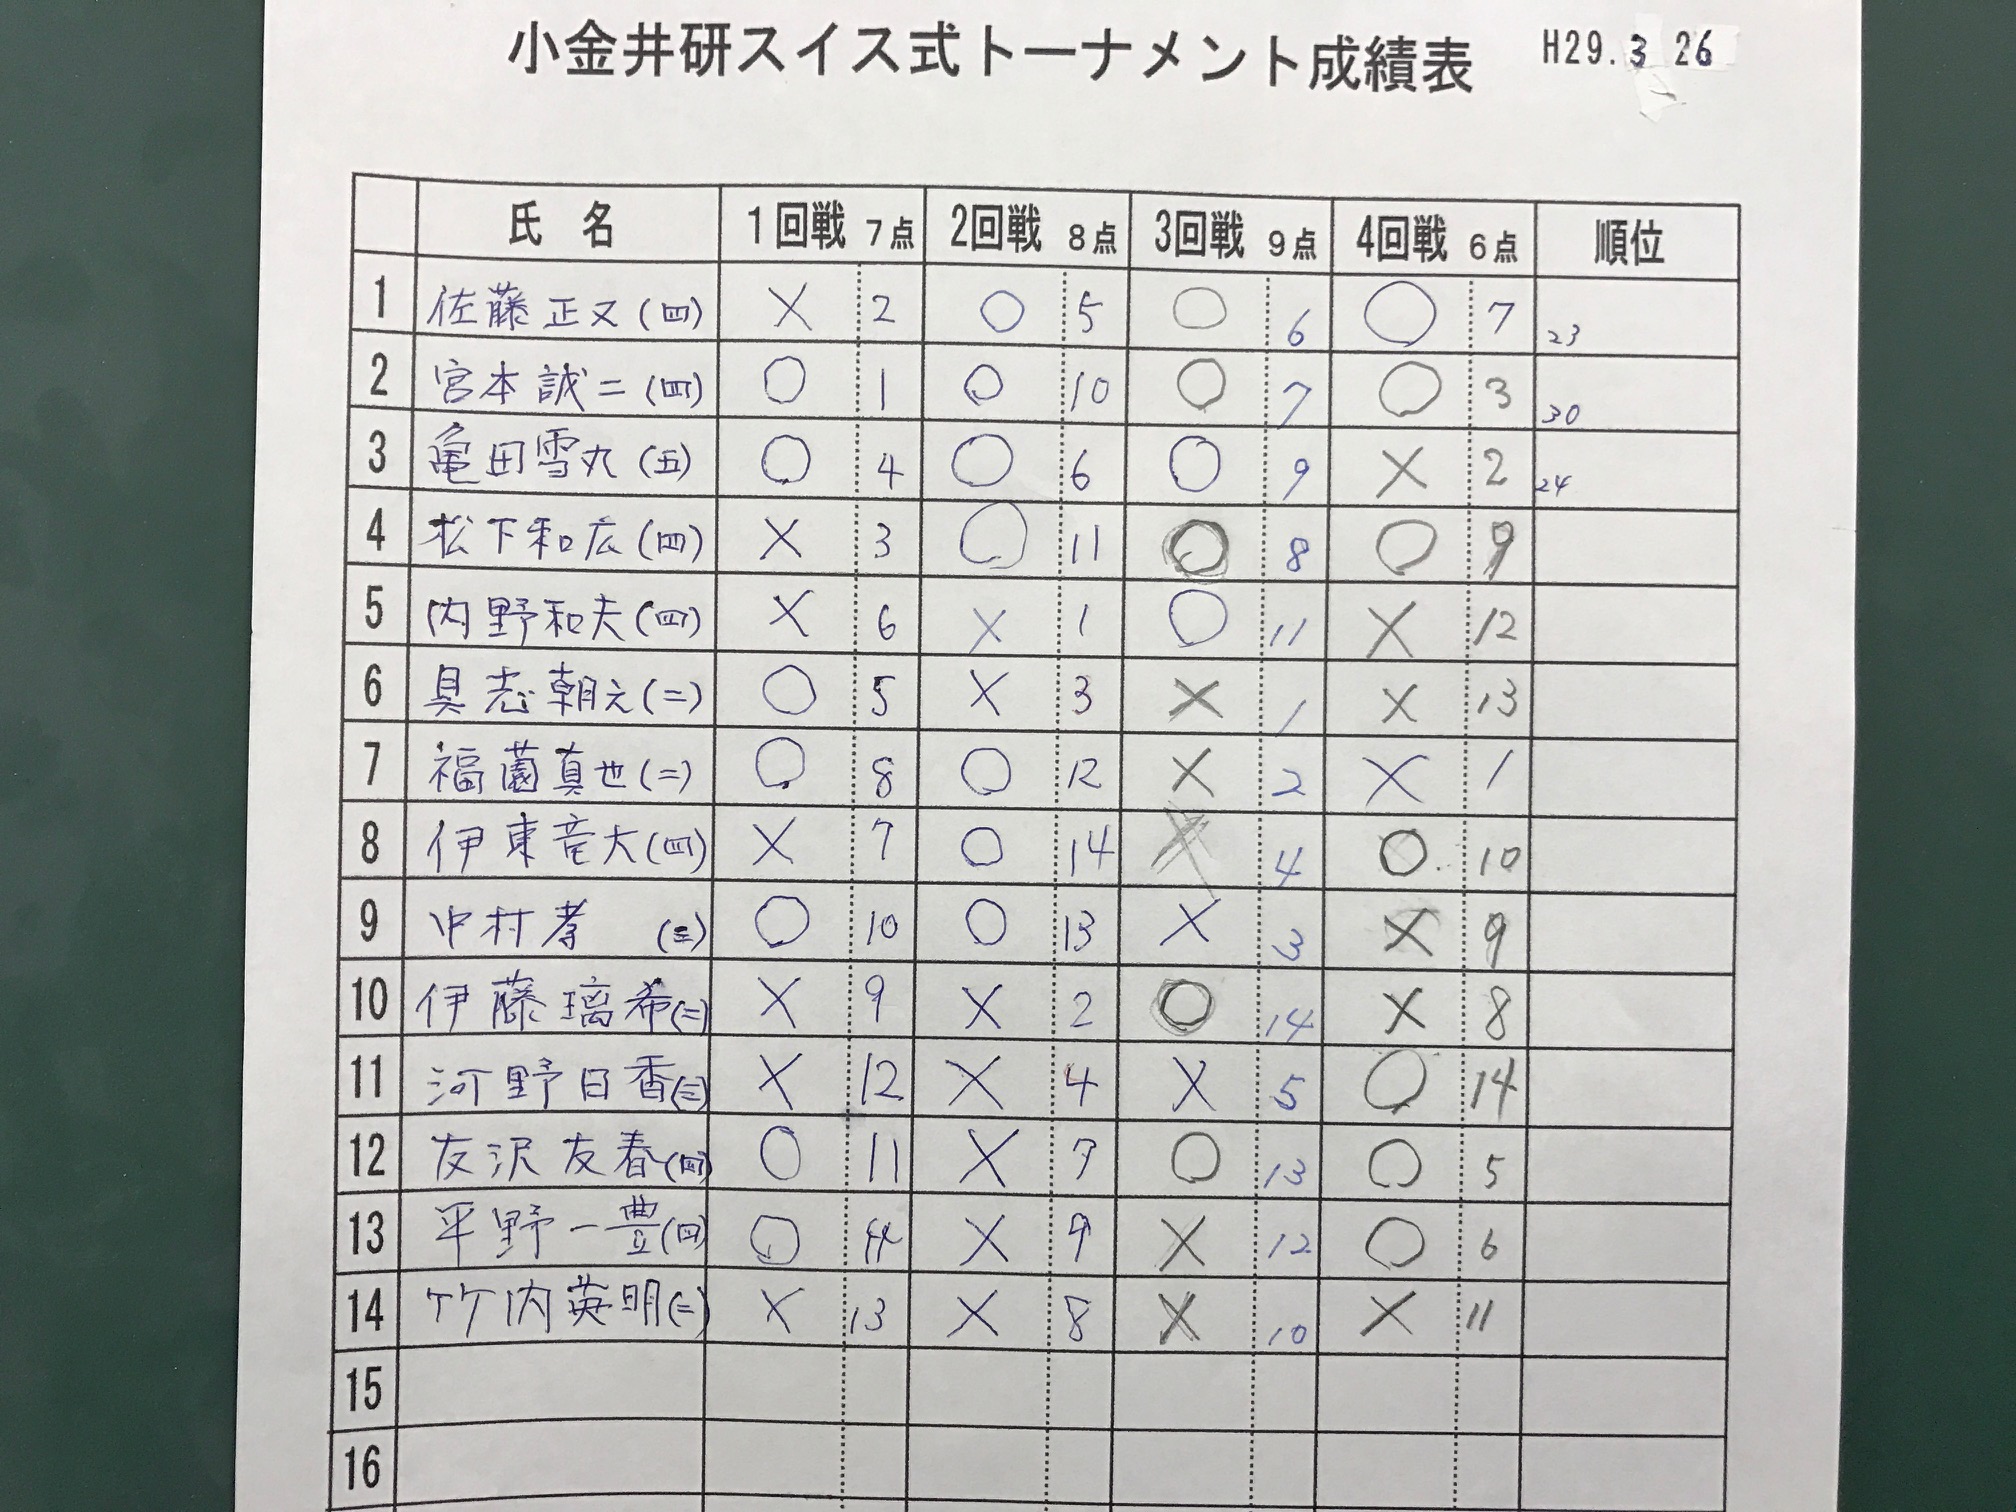 小金井研スイス式トーナメント成績表 H29.3 26
氏 名 1回戦 7点 2回戦 8点 3回戦 9点 4回戦 6点 順位
1 佐藤正又(四) × 2 ○ 5 ○ 6 ○ 7 23
2 宮本誠二(四) ○ 1 ○ 10 ○ 7 ○ 3 30
3 亀田雪丸(五) ○ 4 ○ 6 ○ 9 × 2 24
4 松下和広(四) × 3 ○ 11 ○ 8 ○ 9
5 内野和夫(四) × 6 × 1 ○ 11 × 12
6 具志朝之(二) ○ 5 × 3 × 1 × 13
7 福薗真也(二) ○ 8 ○ 12 × 2 × 1
8 伊東竜大(四) × 7 ○ 14 × 4 ○ 10
9 中村孝 (三) ○ 10 ○ 13 × 3 × 9
10 伊藤璃希(二) × 9 × 2 ○ 14 × 8
11 河野日香(三) × 12 × 4 × 5 ○ 14
12 友沢友春(四) ○ 11 × 7 ○ 13 ○ 5
13 平野一豊(四) ○ × 9 × 12 ○ 6
14 竹内英明(二) × 13 × 8 × 10 × 11
15
16